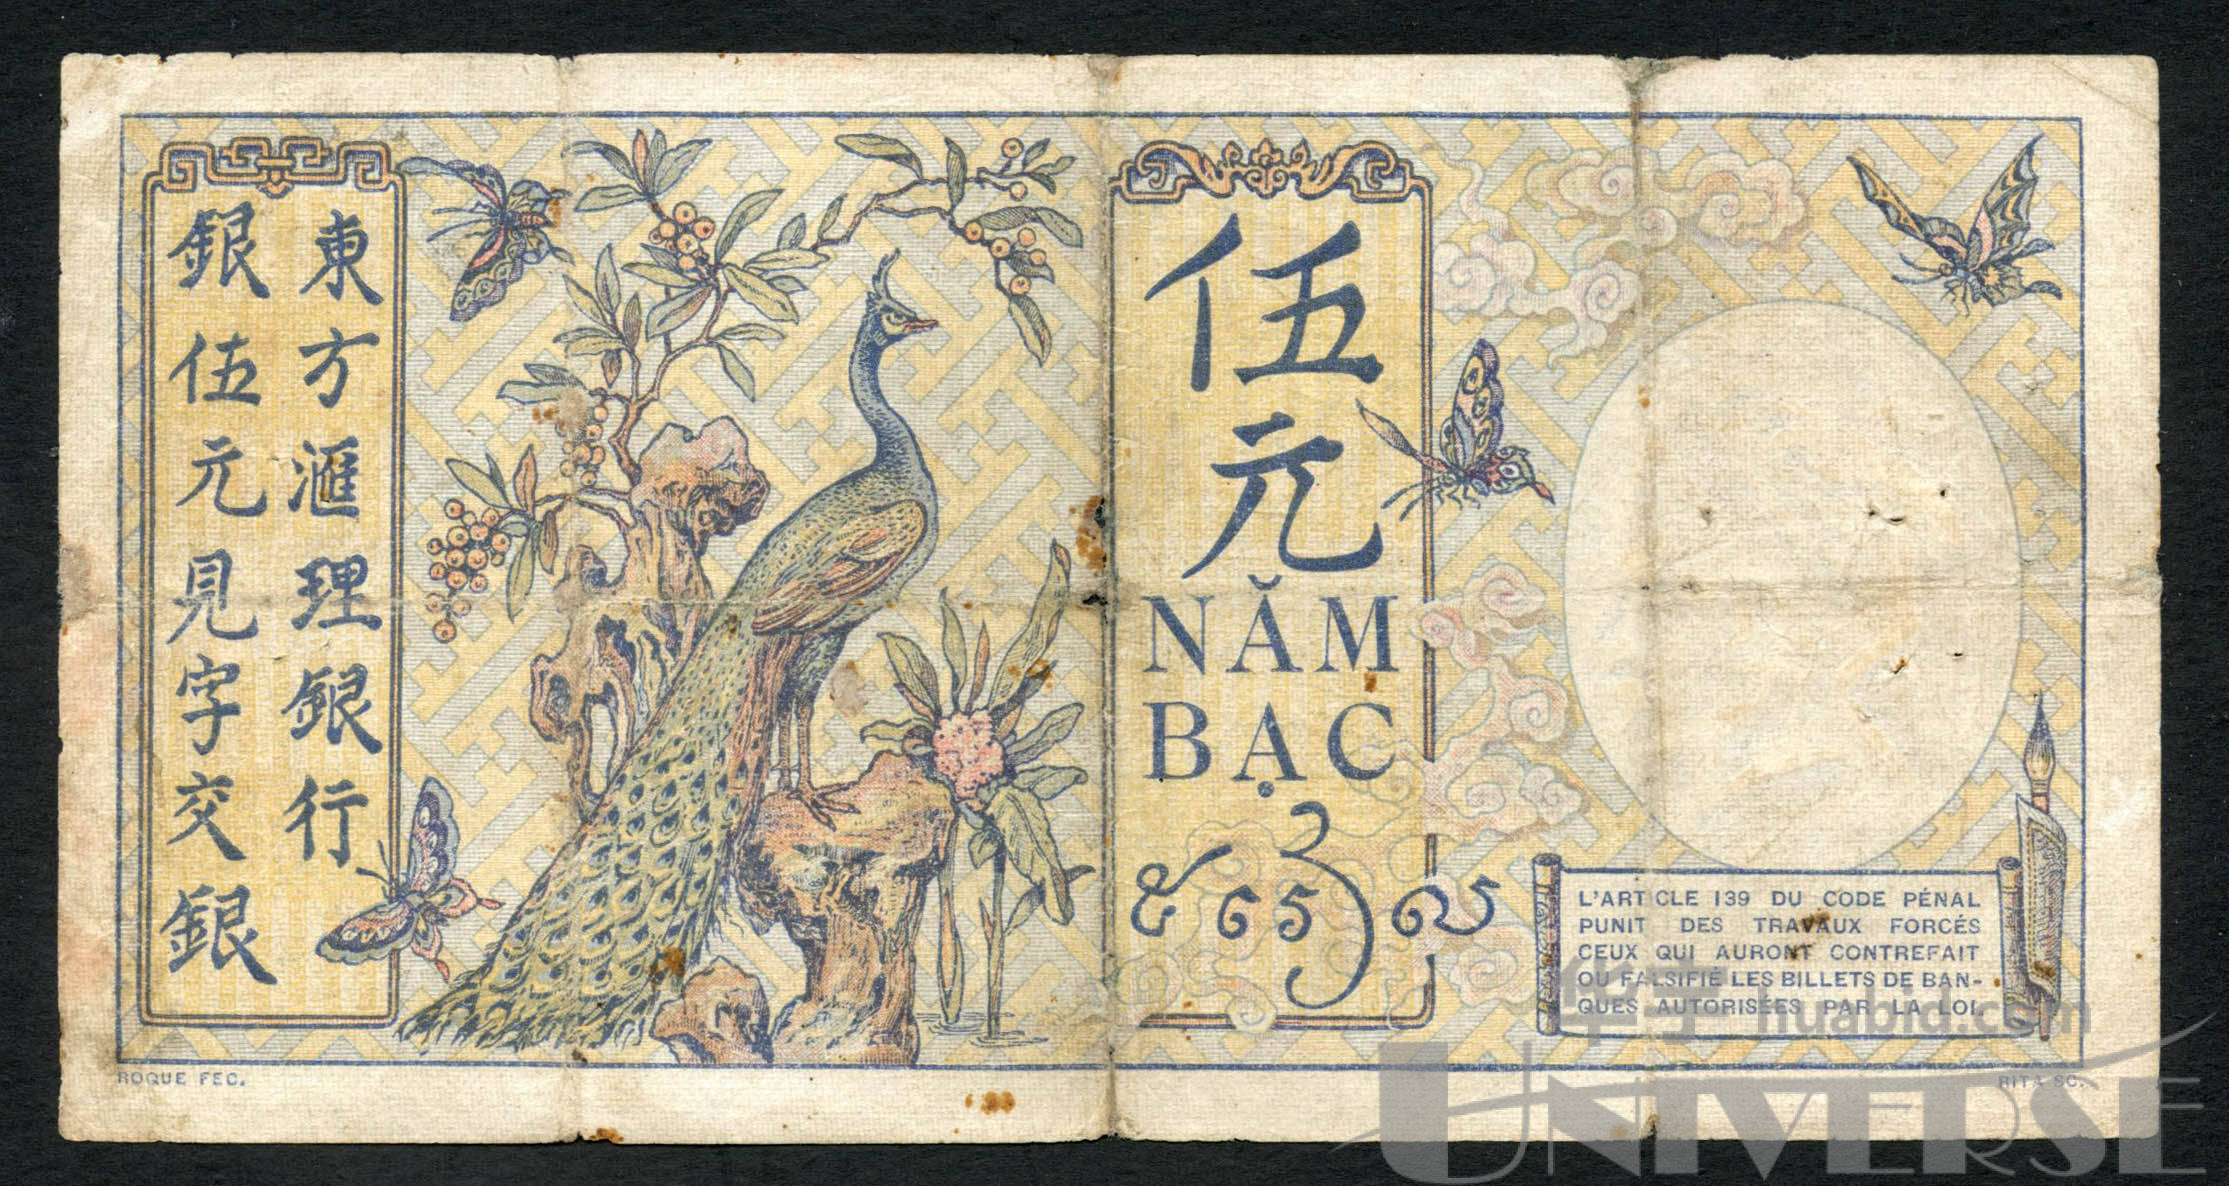 東方滙理銀行
銀伍元見字交銀
伍元
NĂM
BẠC
L'ARTICLE 139 DU CODE PÉNAL
PUNIT DES TRAVAUX FORCÉS
CEUX QUI AURONT CONTREFAIT
OU FALSIFIÉ LES BILLETS DE BAN-
QUES AUTORISÉES PAR LA LOI.
ROQUE FEC.
RITA SC.
huabid.com
UNIVERSE